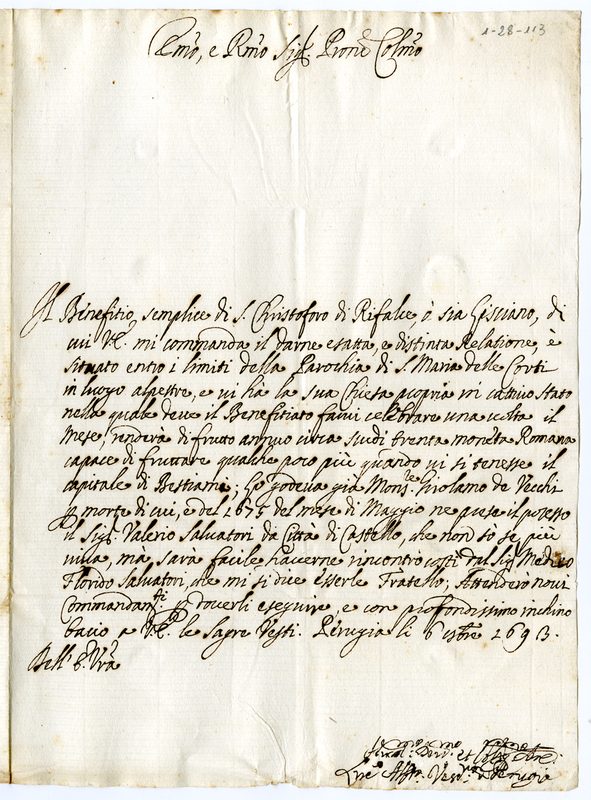 1-28-113
Emo, e Rmo Sigr Prone Colmo
Il Benefitio semplice di S. Christoforo di Rifalce, ò sia Gisciano, di
cui VE. mi commanda il darne esatta, e distinta Relatione, è
situato entro i limiti della Parochia di S. Maria delle Corti
in luogo alpestre, e ui hà la sua Chiesa propria in cattiuo stato
nella quale deue il Benefitiato farui celebrare una uolta il
mese, renderà di frutto annuo circa scudi trenta moneta Romana
capace di fruttare qualche poco più quando ui si tenesse il
capitale di Bestiami; Lo godeua già Monsre Girolamo de Vecchi
p morte di cui, e del 1675 del mese di Maggio ne prese il possesso
il Sigr Valerio Saluatori da Città di Castello, che non sò se più
uiua, mà sarà facile hauerne rincontro costì dal Sigr Medico
Florido Saluatori, che mi si dice esserle Fratello; Attenderò noui
Commandamti p douerli eseguire, e con profondissimo inchino
bacio a VE. le Sagre Vesti. Perugia li 6 1693.
Dell' E. Vra
Vesc